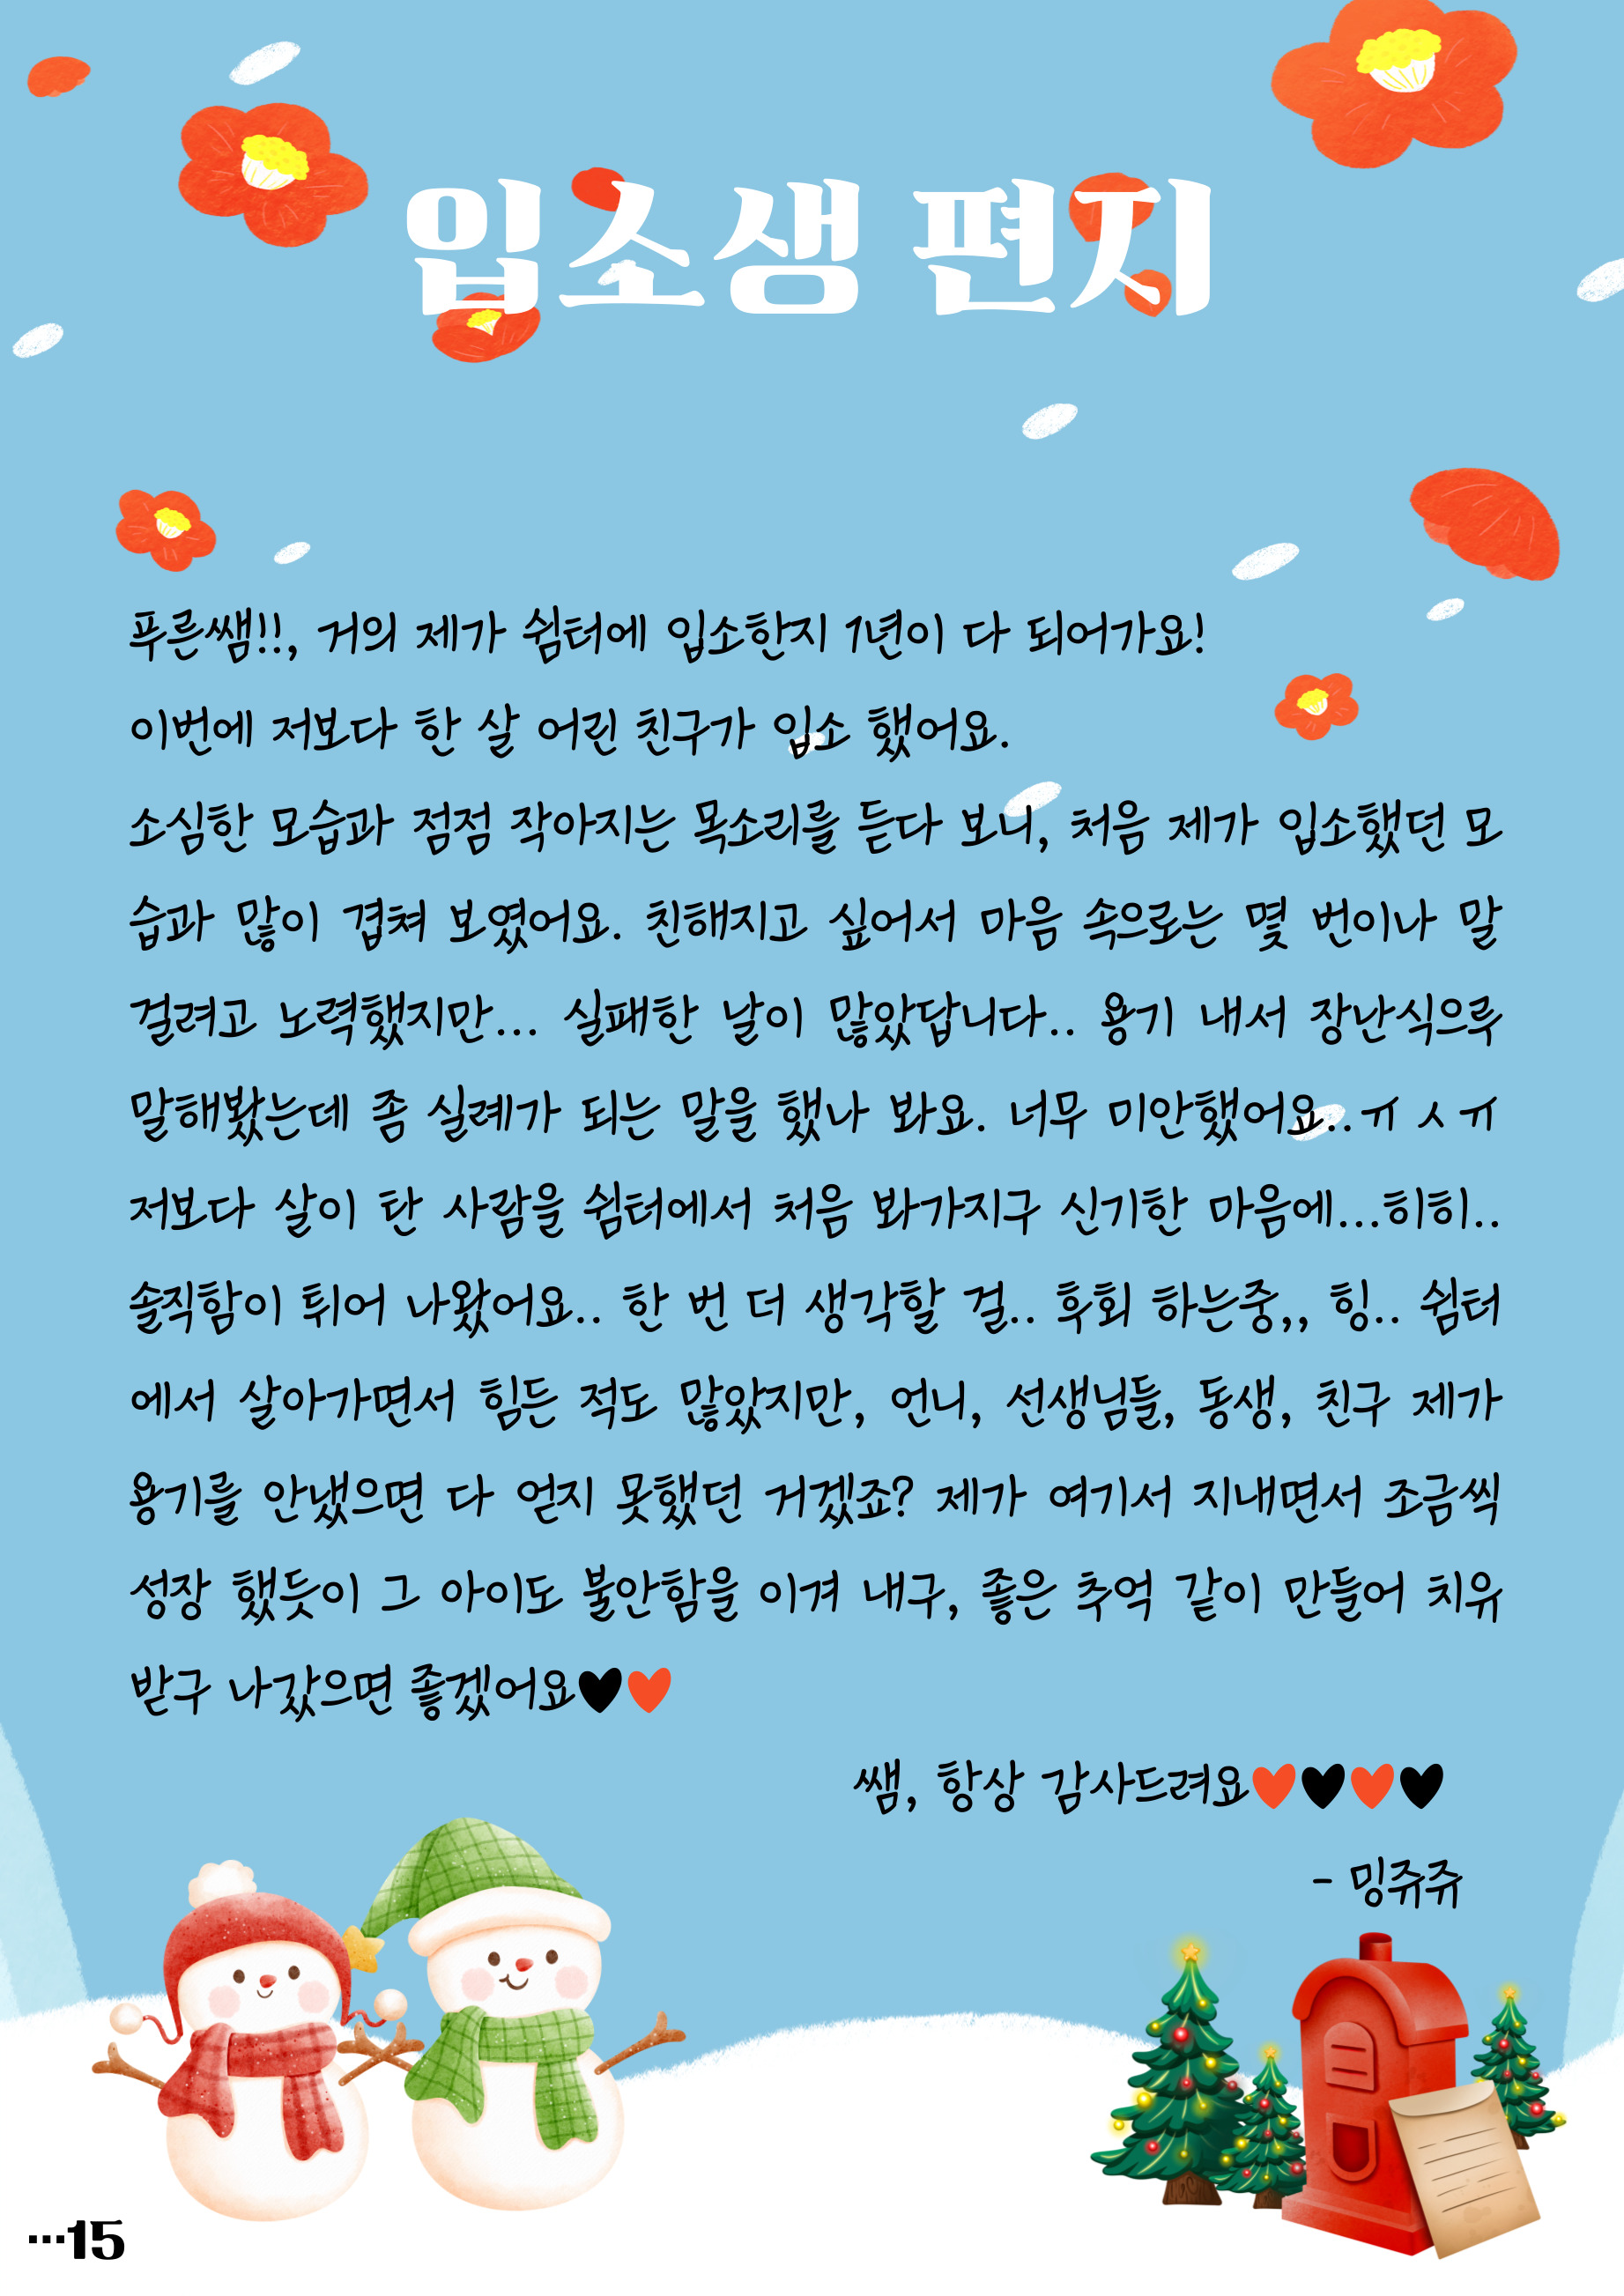 입소생 편지
푸른쌤!!, 거의 제가 쉼터에 입소한지 1년이 다 되어가요!
이번에 저보다 한 살 어린 친구가 입소 했어요.
소심한 모습과 점점 작아지는 목소리를 듣다 보니, 처음 제가 입소했던 모
습과 많이 겹쳐 보였어요. 친해지고 싶어서 마음 속으로는 몇 번이나 말
걸려고 노력했지만... 실패한 날이 많았답니다.. 용기 내서 장난식으루
말해봤는데 좀 실례가 되는 말을 했나 봐요. 너무 미안했어요..ㅠㅅㅠ
저보다 살이 탄 사람을 쉼터에서 처음 봐가지구 신기한 마음에...히히..
솔직함이 튀어 나왔어요.. 한 번 더 생각할 걸.. 후회 하는중,, 힝.. 쉼터
에서 살아가면서 힘든 적도 많았지만, 언니, 선생님들, 동생, 친구 제가
용기를 안냈으면 다 얻지 못했던 거겠죠? 제가 여기서 지내면서 조금씩
성장 했듯이 그 아이도 불안함을 이겨 내구, 좋은 추억 같이 만들어 치유
받구 나갔으면 좋겠어요♥♥
쌤, 항상 감사드려요♥♥♥♥
- 밍쥬쥬
···15